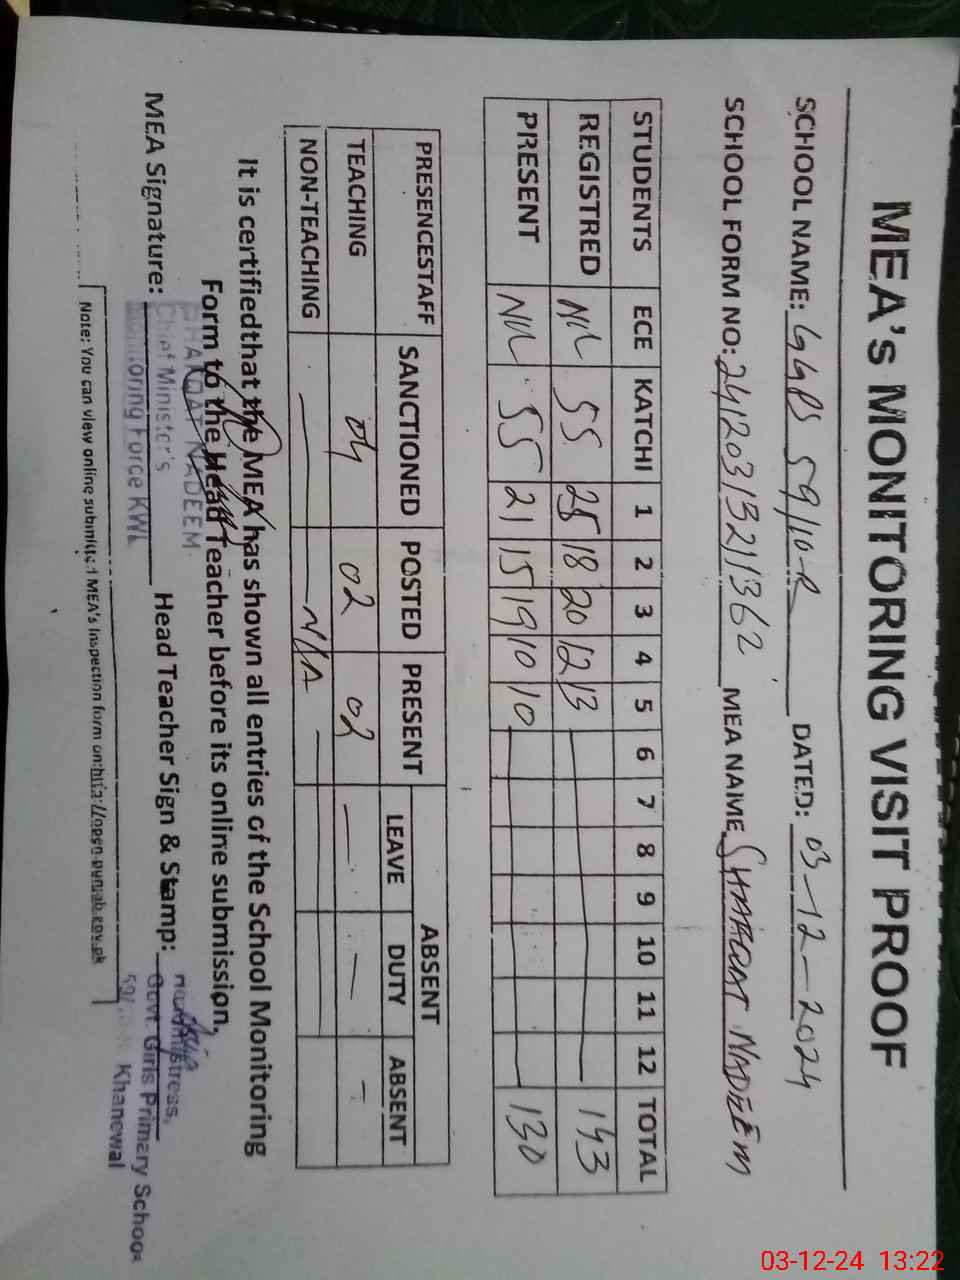 MEA's MONITORING VISIT PROOF
SCHOOL NAME: GGPS 59/10-R DATED: 03-12-2024
SCHOOL FORM NO: 24120313211362 MEA NAME SHAFQAT NADEEM
STUDENTS ECE KATCHI 1 2 3 4 5 6 7 8 9 10 11 12 TOTAL
REGISTRED NIL 55 25 18 20 12 13 143
PRESENT NIL 55 21 15 19 10 10 130
PRESENCESTAFF SANCTIONED POSTED PRESENT ABSENT
LEAVE DUTY ABSENT
TEACHING 04 02 02 — — -
NON-TEACHING — N/A —
It is certifiedthat the MEA has shown all entries of the School Monitoring
Form to the Head Teacher before its online submission.
MEA Signature: Head Teacher Sign & Stamp:
NADEEM
Chief Minister's
Monitoring Force KWL
Govt. Girls Primary School
Khanewal
Note: You can view online submitted MEA's Inspection form on:http://open.punjab.gov.pk
03-12-24 13:22